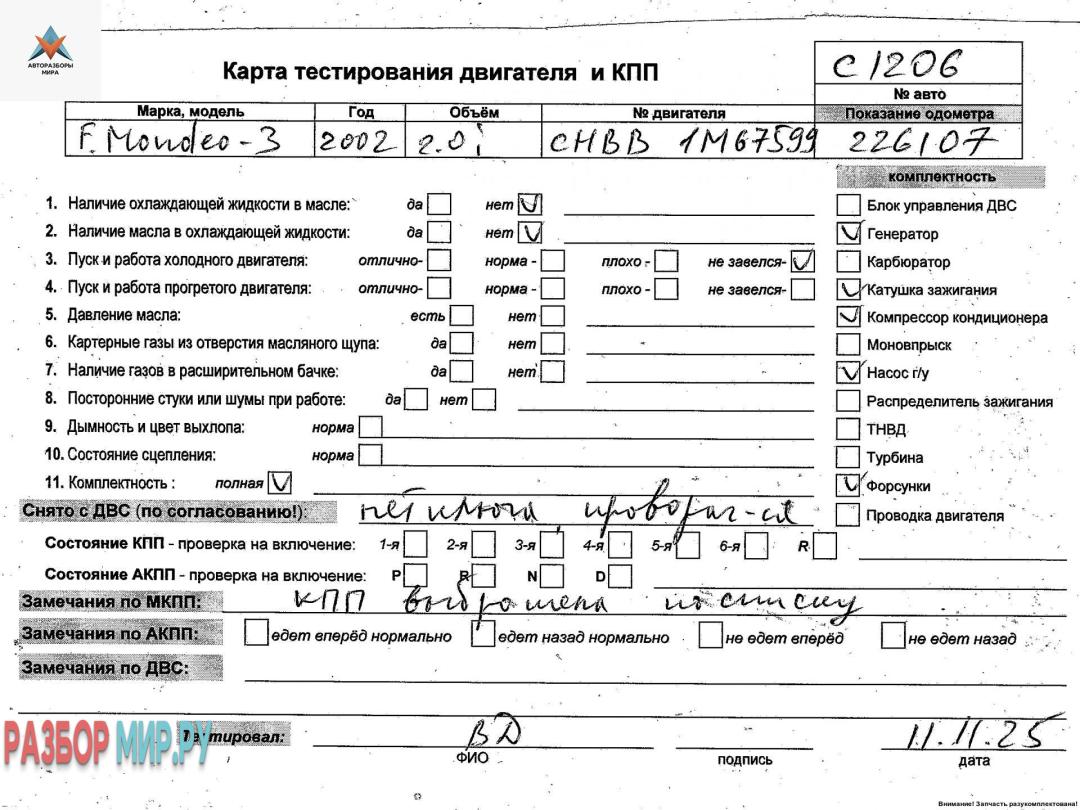 АВТОРАЗБОРЫ
МИРА
Карта тестирования двигателя и КПП
С1206
№ авто
Марка, модель Год Объём № двигателя Показание одометра
F. Mondeo-3 2002 2.0i CHBB 1M67599 226107
комплектность
1. Наличие охлаждающей жидкости в масле: да нет Блок управления ДВС
2. Наличие масла в охлаждающей жидкости: да нет Генератор
3. Пуск и работа холодного двигателя: отлично- норма - плохо - не завелся- Карбюратор
4. Пуск и работа прогретого двигателя: отлично- норма - плохо - не завелся- Катушка зажигания
5. Давление масла: есть нет Компрессор кондиционера
6. Картерные газы из отверстия масляного щупа: да нет Моновпрыск
7. Наличие газов в расширительном бачке: да нет Насос г/у
8. Посторонние стуки или шумы при работе: да нет Распределитель зажигания
9. Дымность и цвет выхлопа: норма ТНВД
10. Состояние сцепления: норма Турбина
11. Комплектность : полная Форсунки
Снято с ДВС (по согласованию!): нет ключа, проворач-ся Проводка двигателя
Состояние КПП - проверка на включение: 1-я 2-я 3-я 4-я 5-я 6-я R
Состояние АКПП - проверка на включение: P R N D
Замечания по МКПП: КПП выброшена по списку
Замечания по АКПП: едет вперёд нормально едет назад нормально не едет вперёд не едет назад
Замечания по ДВС:
РАЗБОР МИР.РУ
Тестировал: ВД 11.11.25
ФИО подпись дата
Внимание! Запчасть разукомплектована!